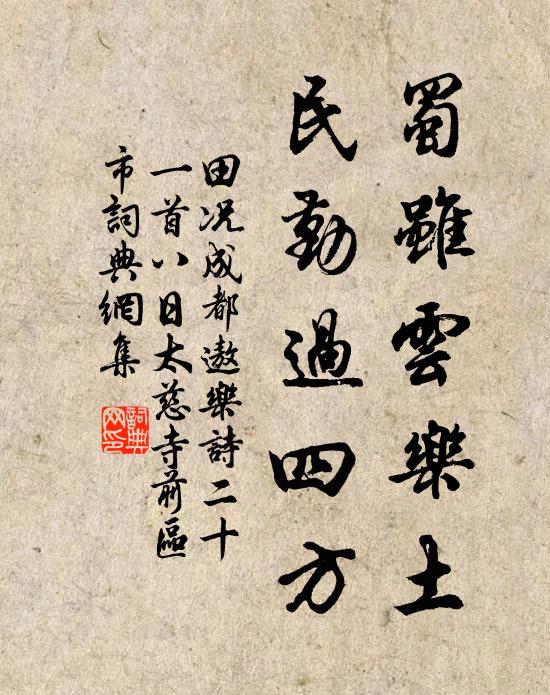 蜀雖雲樂土
民勤過四方
田况成都遨樂詩二十
一首八日太慈寺前區
市詞典網集
詞典网印